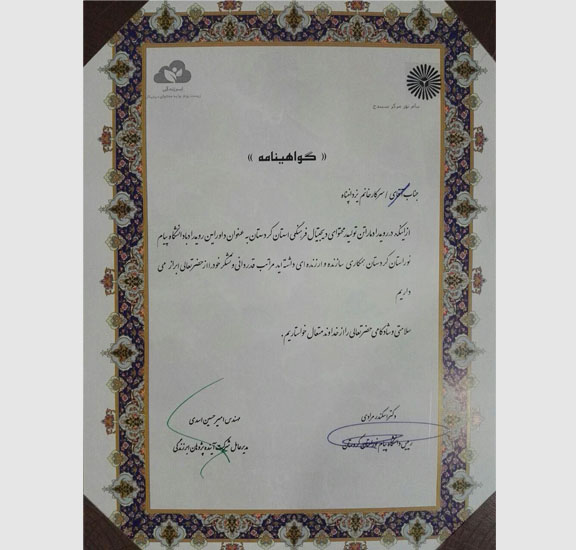 ابرزندگی
پیام نور مرکز سنندج
« گواهینامه »
جناب آقای / سرکار خانم یزدانپناه
ازینکه در رویداد ماراتن تولید محتوای دیجیتال فرهنگی استان کردستان به عنوان داور این رویداد با دانشگاه پیام
نور استان کردستان همکاری سازنده و ارزنده ای داشته اید مراتب قدردانی و تشکر خود را از حضرتعالی ابراز می
داریم
سلامتی و شادکامی حضرتعالی را از خداوند متعال خواستاریم .
دکتر اسکندر مرادی
رییس دانشگاه پیام نور استان کردستان
مهندس امیرحسین اسدی
مدیرعامل شرکت آینده پژوهان ابرزندگی